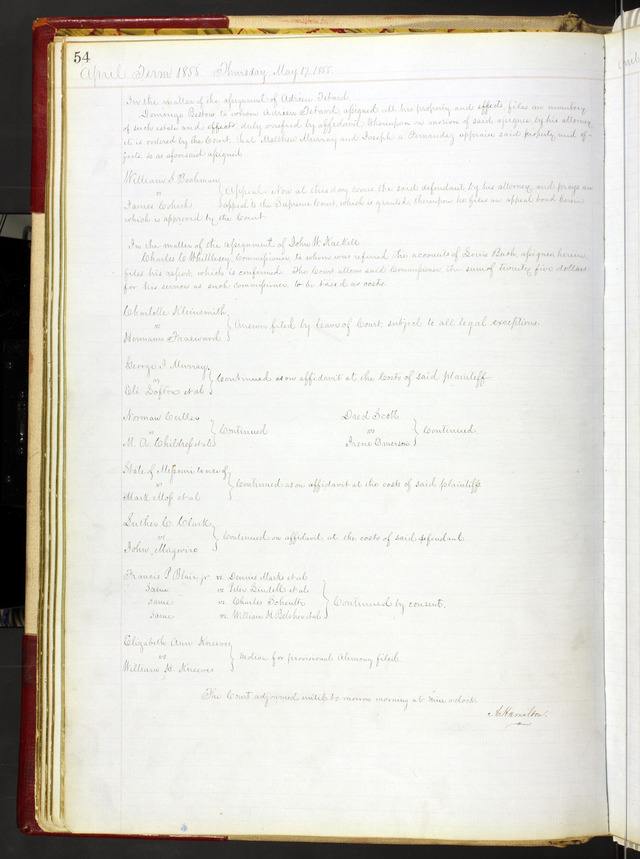 54
April Term 1855 Thursday May 17, 1855.
In the matter of the assignment of Adrien
Domingo to whom Adrien assigned all his property and effects, files an inventory
of such estate and effects duly verified by affidavit, Whereupon on motion of said assignee by his attorney
it is ordered by the Court, that Matthew Murray and Joseph a Fernandez appraise said property and ef-
fects, so as aforesaid assigned
William S
vs
James
Appeal. Now at this day comes the said defendant by his attorney, and prays an
appeal to the Supreme Court, which is granted, thereupon he files an appeal bond herein
which is approved by the Court.
In the matter of the assignment of John W Hackett
Charles C Whittlesey, Commissioner to whom was referred the accounts of Louis Bach, assignee herein,
files his report which is confirmed. The Court allows said Commissioner the sum of twenty five dollars
for his services as such commissioner to be taxed as costs.
Charlotte Kleinsmith
vs
Hermann
Answer filed by leave of Court, subject to all legal exceptions.
George I Murray,
vs
Eli Lofton et al
Continued as on affidavit at the costs of said plaintiff
Norman Cutter
vs
M. A. Childress et al
Continued
Dred Scott
vs
Irene Emerson
Continued
State of Missouri to use of
vs
Mark Moss et al
Continued as on affidavit at the costs of said plaintiffs
Luther C. Clark
vs
John Magwire
Continued on affidavit at the costs of said defendant
Francis P Blair, jr vs Dennis Marks et al
Same vs Peter Lindell et al
same vs Charles
same vs William H Belcher et al
Continued by consent.
Elizabeth Ann Kneeves
vs
William H. Kneeves
Motion for provisional Alimony filed.
The Court adjourned until tomorrow morning at nine o'clock
A. Hamilton.